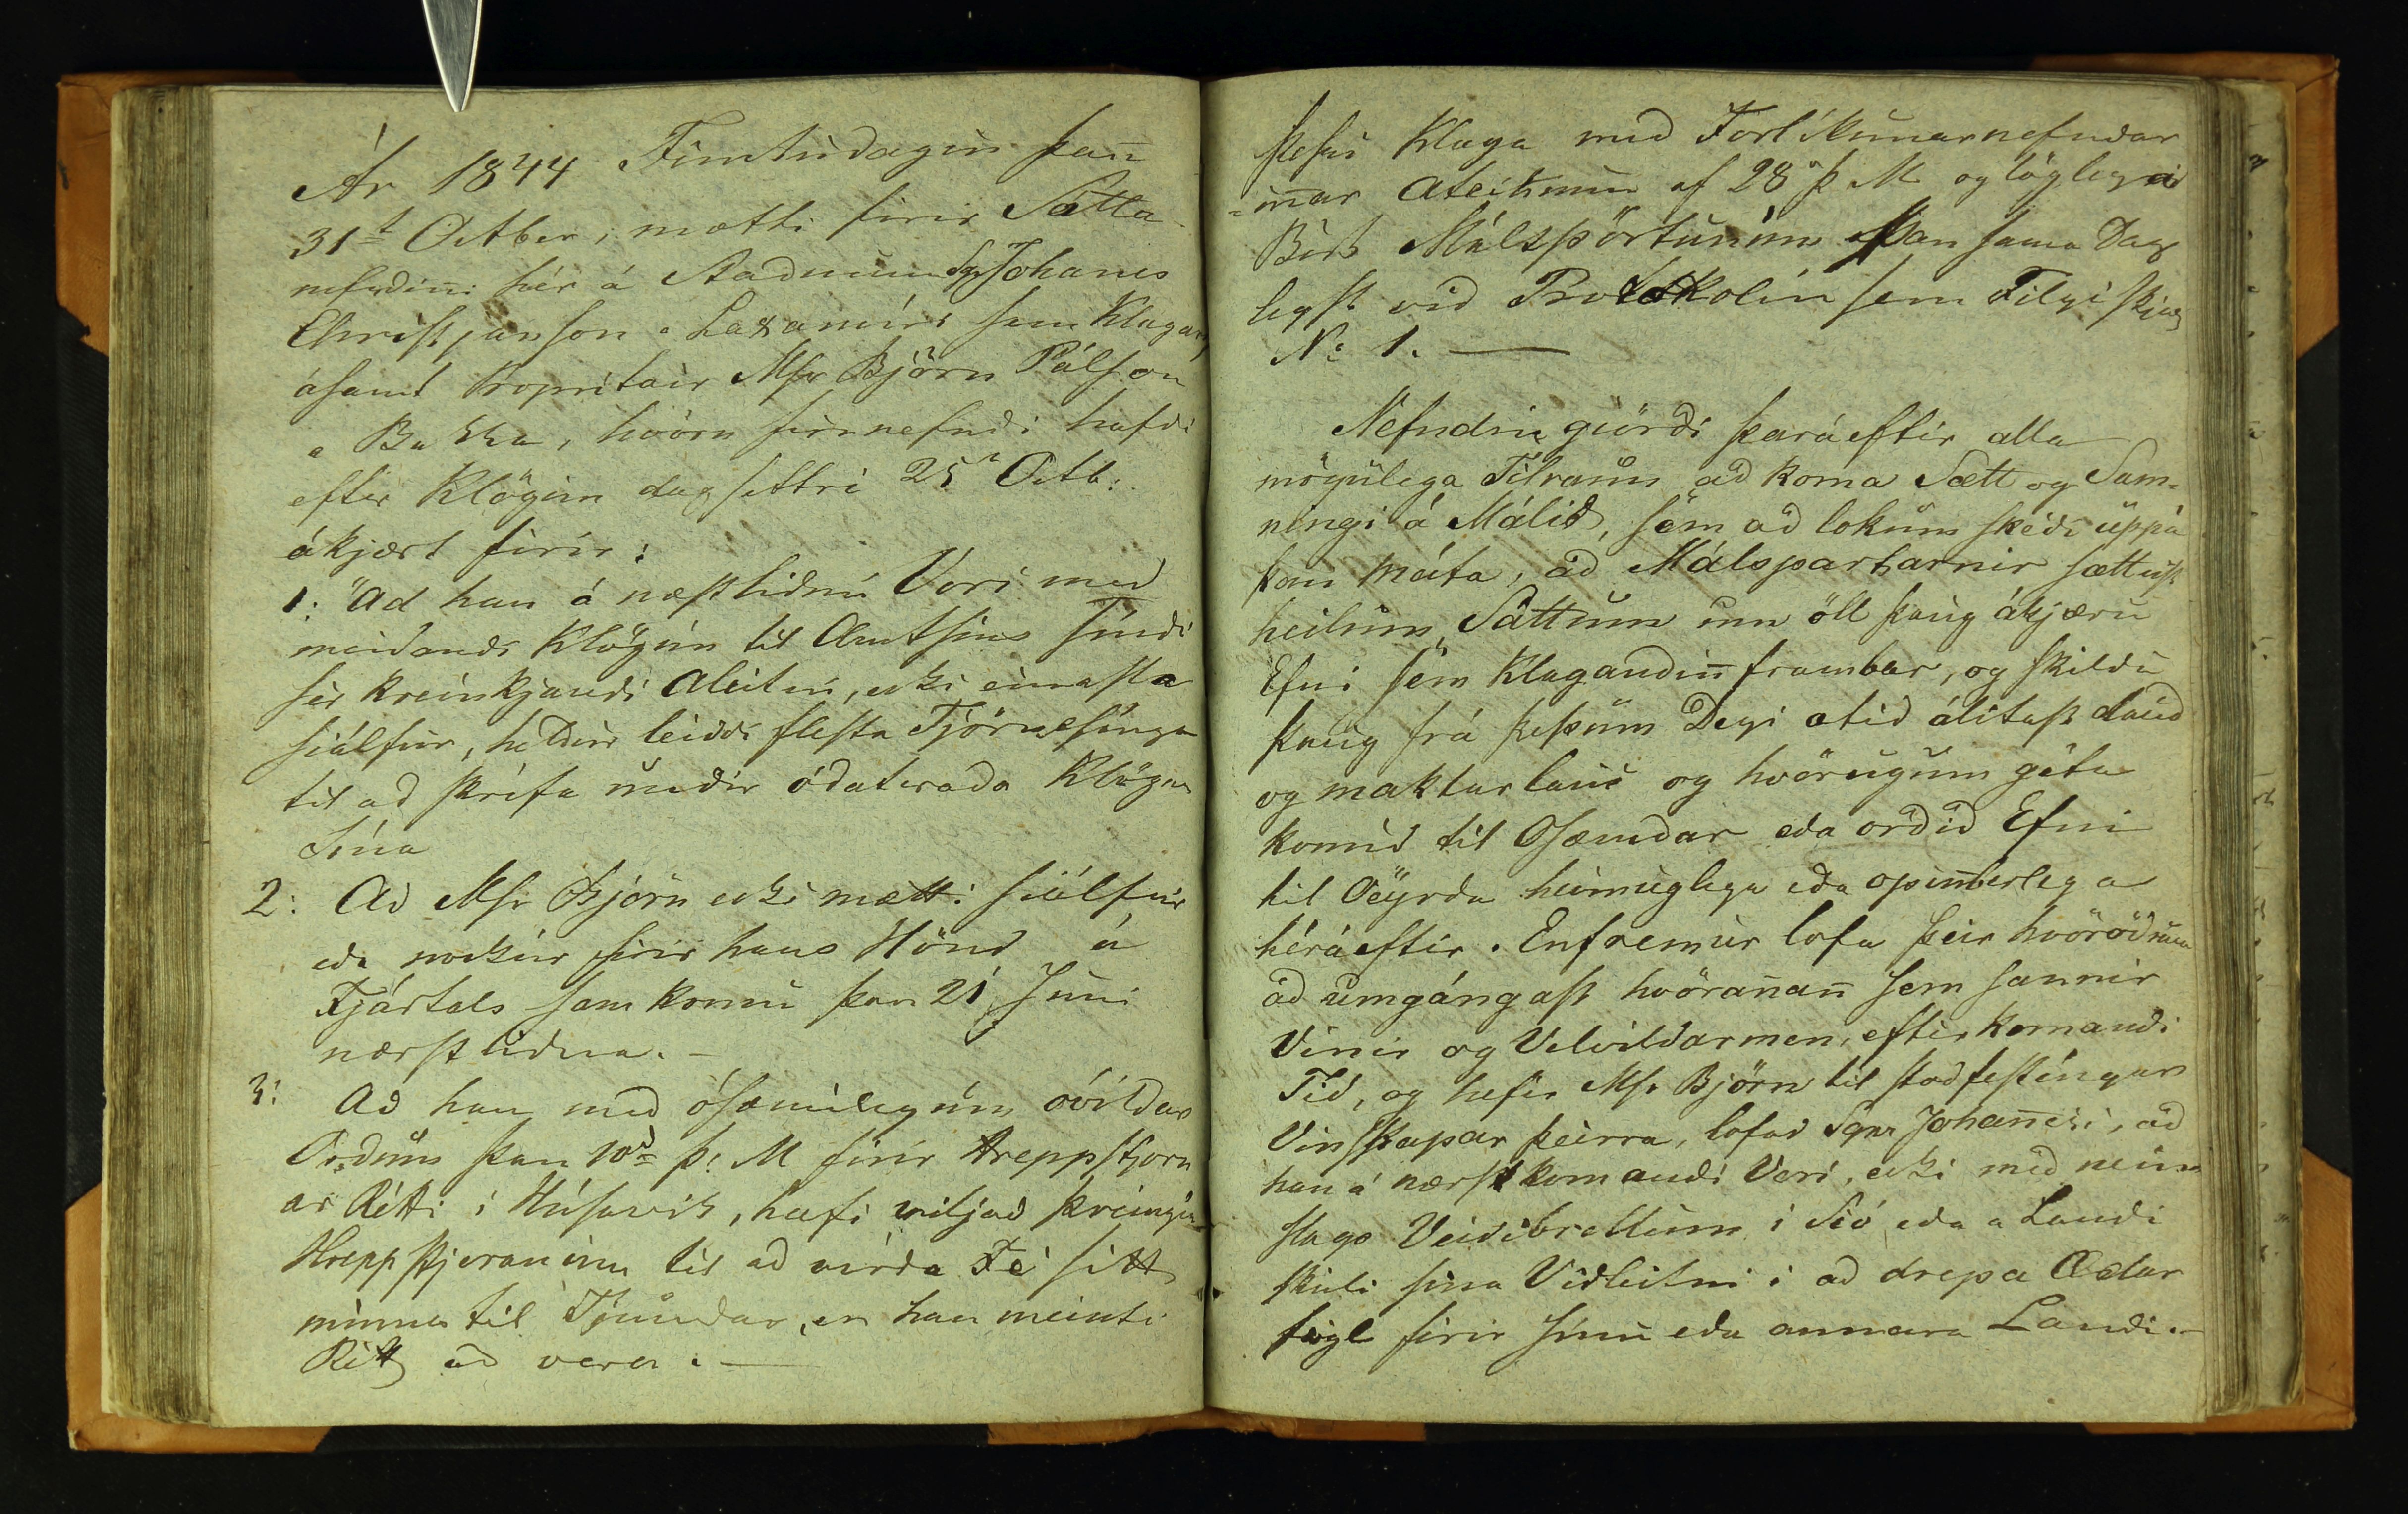 Ár 1844 Fimtudagin þan̄
31t Octber, mætti firir Sátta
nefndini hér á Stadnum Sgr Johanes
Christjánson á Laxamíri sem Klagari,
ásamt Proprítair Msr Björn Pálson
á Bakka, hvörn firrnefndi hafdi
efter Klögun dagsettri 25a Octb:
ákjært firir:
1. "Ad han á næstlidnu Vori med
meidandi Klögun til Amtsins síndi
sér kreinkjandi Aleitni, ecki einasta
siálfur, heldur leiddi flesta Tjörnesínga
til ad skrifa undir ódaterada Klögun
Sína
2: Ad Msr Björn ecki mætti siálfur
eda nockur firir hans Hönd á
Fjártals samkomu þan 21 Juni
næstlidna. —
3: Ad han med ósæmilegum óvildar
Ordum þan 10da þ: M firir Hreppstjorn
ar Rétti i Húsavik, hafi viljad þreingia
Hreppstjoranum til ad virda Fé sitt
minna til Tjundar, en han meinti
Rétt ad vera. —
þessi Klaga med Forlíkunarnefndar
=in̄ar Ateiknun af 28a þ M. og løglega
Birt Málspörtunum þan sama Dag
legst vid Protokolin sem Filgiskjal
No 1. —
Nefndin giördi þaráeftir alla
mögulega Tilraun ad koma Sætt og Sam-
ningi á Málid, sem ad lokum skédi uppá
þan máta, ad Málspartarnir sættust
heilum Sáttum um öll þaug ákjæru
Efni sem Klagandin̄ frambar, og skildu
þaug frá þessum Degi ætid álitast daud
og maktarlaus og hvörugum géta
komid til Osæmdar eda ordid Efni
til Oeyrda heimuglega eda opinberlega
héráeftir. Enfremur lofa þeir hvöröðrum
ad umgángast hvöran̄an̄ sem sannir
Vinir og Velvildarmen, eftirkomandi
Tid, og hefir Msr Björn til stadfestíngar
Vinskapar þeirra, lofad Sgnr Johan̄esi, ad
han á næstkomandi Vori, ecki med neins
slags Veidibrellum i Sió eda a Landi
skuli sina Vidleitni i ad drepa Ædar
fugl firir sínu eda annara Landi.—